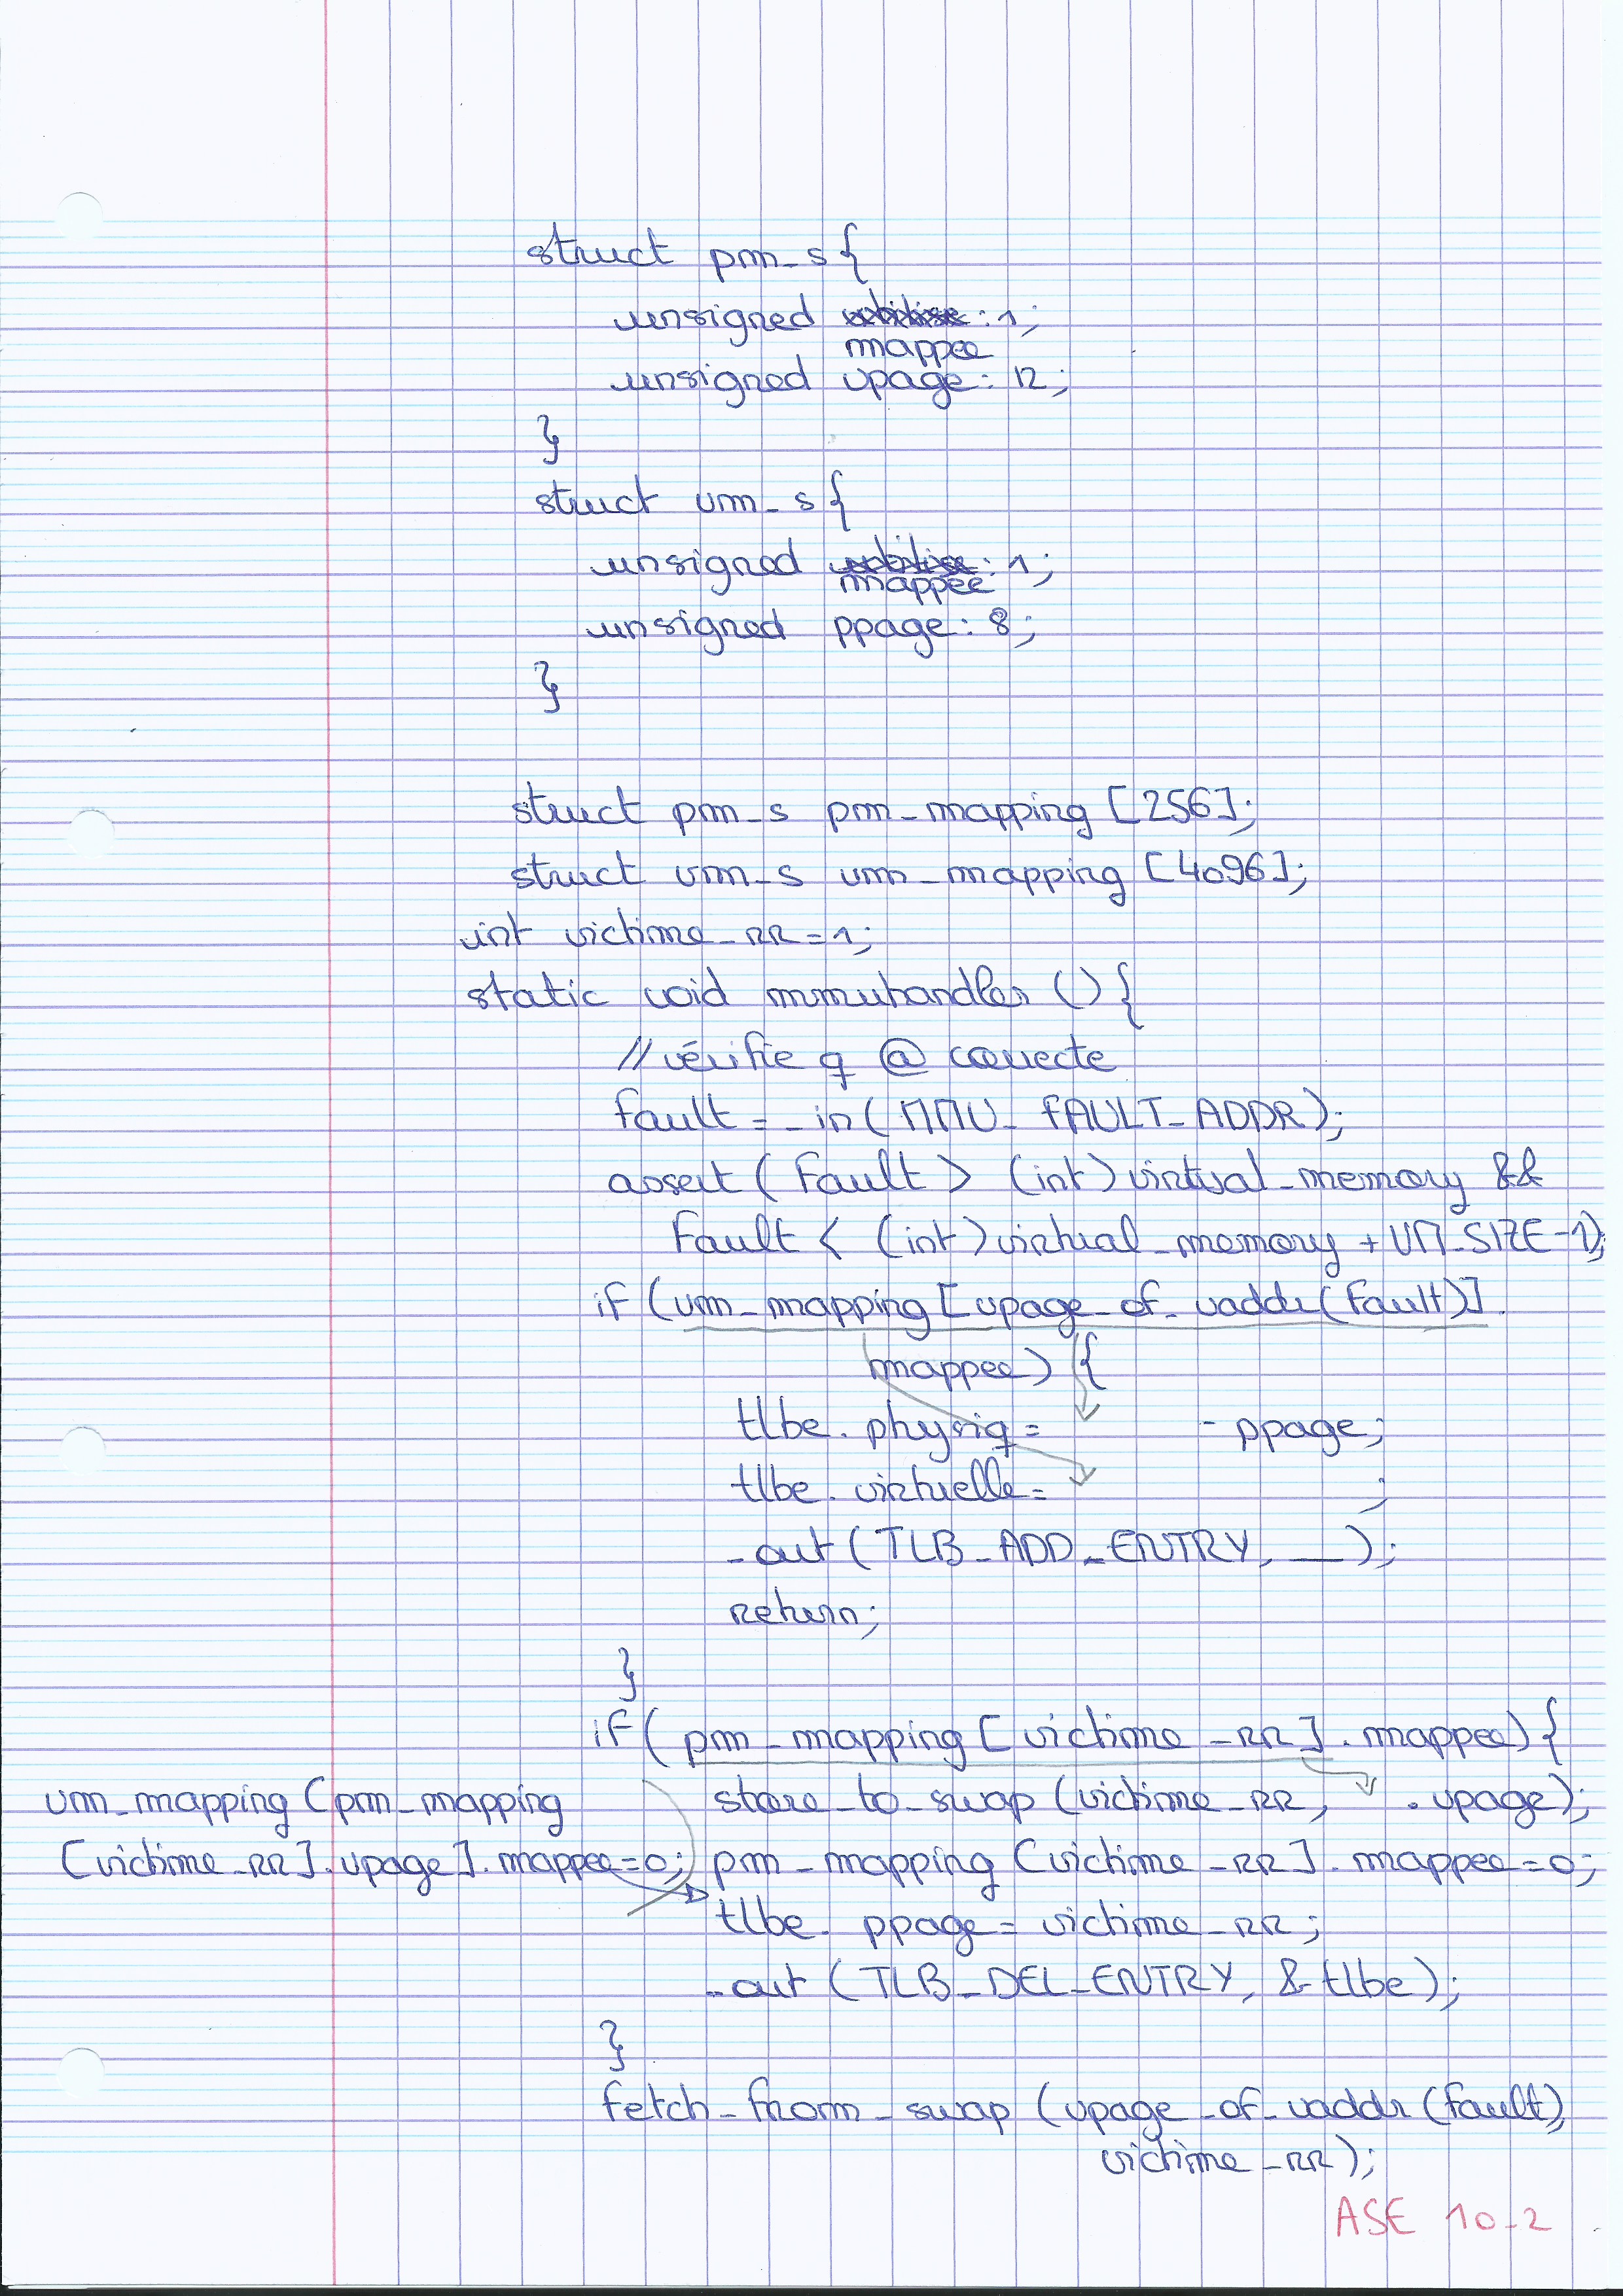 struct pm_s{
unsigned utilise : 1;
mappee
unsigned vpage : 12;
}
struct vm_s{
unsigned utilise : 1;
mappée
unsigned ppage : 8;
}
struct pm_s pm_mapping [256];
struct vm_s vm_mapping [4096];
int victime_RR = 1;
static void mmuhandler () {
// vérifie q @ correcte
fault = _in(MMU_FAULT_ADDR);
assert (fault > (int) virtual_memory &&
fault < (int) virtual_memory + VM_SIZE-1);
if (vm_mapping [vpage_of_vaddr(fault)].
mappee) {
tlbe. physiq = - ppage;
tlbe. virtuelle = ;
_out (TLB_ADD_ENTRY, __);
return;
}
if ( pm_mapping [ victime_RR ] . mappee) {
store_to_swap (victime_RR, . vpage);
vm_mapping [pm_mapping
[victime_RR]. vpage]. mappee=0;
pm_mapping [victime_RR] . mappee=0;
tlbe. ppage = victime_RR ;
_out (TLB_DEL_ENTRY, & tlbe);
}
fetch_from_swap (vpage_of_vaddr (fault),
victime_RR);
ASE 10-2